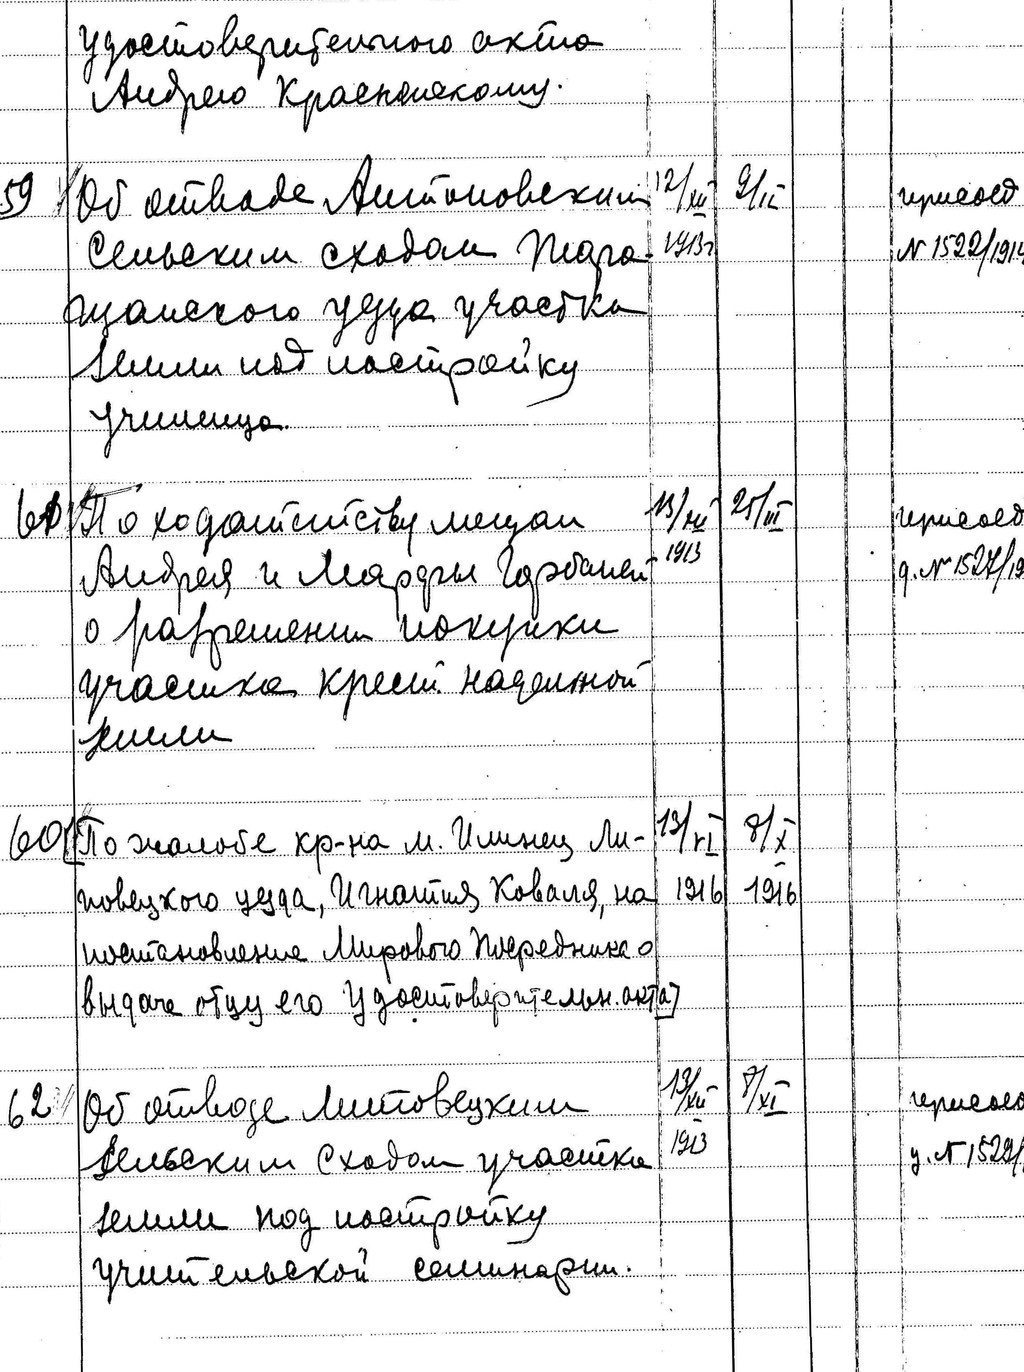 удостоверительного акта
Андрею Красненскому.
59 Об отводе Антоновским 12/XII 9/II присоед
сельским сходом Тара- 1913г N 1522/1914
щанского уезда участка
земли под постройку
училища.
61 По ходатайству мещан 13/XII 25/III присоед
Андрея и Марфы Горбаней 1913 д. N 1527/19
о разрешении покупки
участка крест. надельной
земли
60 [По жалобе кр-на м. Илинец Ли- 13/VI 8/X
повецкого уезда, Игнатия Коваля, на 1916 1916
постановление Мирового Посредника о
выдаче отцу его Удостоверительн. акта]
62 Об отводе Липовецким 13/XII 8/XI присоед
сельским сходом участка 1913 д. N 1529/
земли под постройку
учительской семинарии.